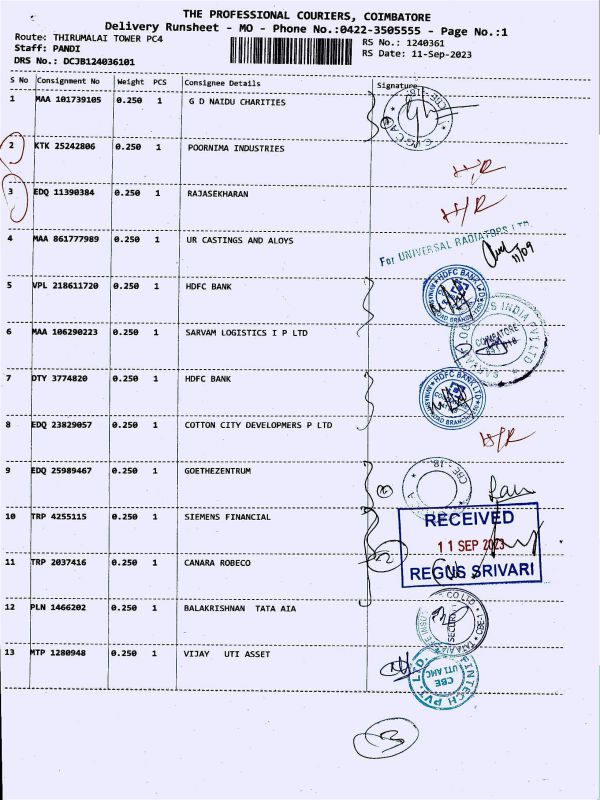 THE PROFESSIONAL COURIERS, COIMBATORE
Delivery Runsheet - MO - Phone No.:0422-3505555 - Page No.:1
Route: THIRUMALAI TOWER PC4
RS No.: 1240361
Staff: PANDI
RS Date: 11-Sep-2023
DRS No.: DCJB124036101
S No Consignment No Weight PCS Consignee Details Signature
1 MAA 101739105 0.250 1 G D NAIDU CHARITIES
2 KTK 25242806 0.250 1 POORNIMA INDUSTRIES
H/R
3 EDQ 11390384 0.250 1 RAJASEKHARAN
H/R
4 MAA 861777989 0.250 1 UR CASTINGS AND ALOYS
For UNIVERSAL RADIATORS LTD
11/09
5 VPL 218611720 0.250 1 HDFC BANK
HDFC BANK LTD
6 MAA 106290223 0.250 1 SARVAM LOGISTICS I P LTD
COIMBATORE
7 DTY 3774820 0.250 1 HDFC BANK
HDFC BANK LTD
8 EDQ 23829057 0.250 1 COTTON CITY DEVELOPMERS P LTD
H/R
9 EDQ 25989467 0.250 1 GOETHEZENTRUM
CBE - 18
10 TRP 4255115 0.250 1 SIEMENS FINANCIAL
RECEIVED
11 SEP 2023
REGUS SRIVARI
11 TRP 2037416 0.250 1 CANARA ROBECO
12 PLN 1466202 0.250 1 BALAKRISHNAN TATA AIA
13 MTP 1280948 0.250 1 VIJAY UTI ASSET
FINTECH PVT. LTD.
UTI AMC
CBE